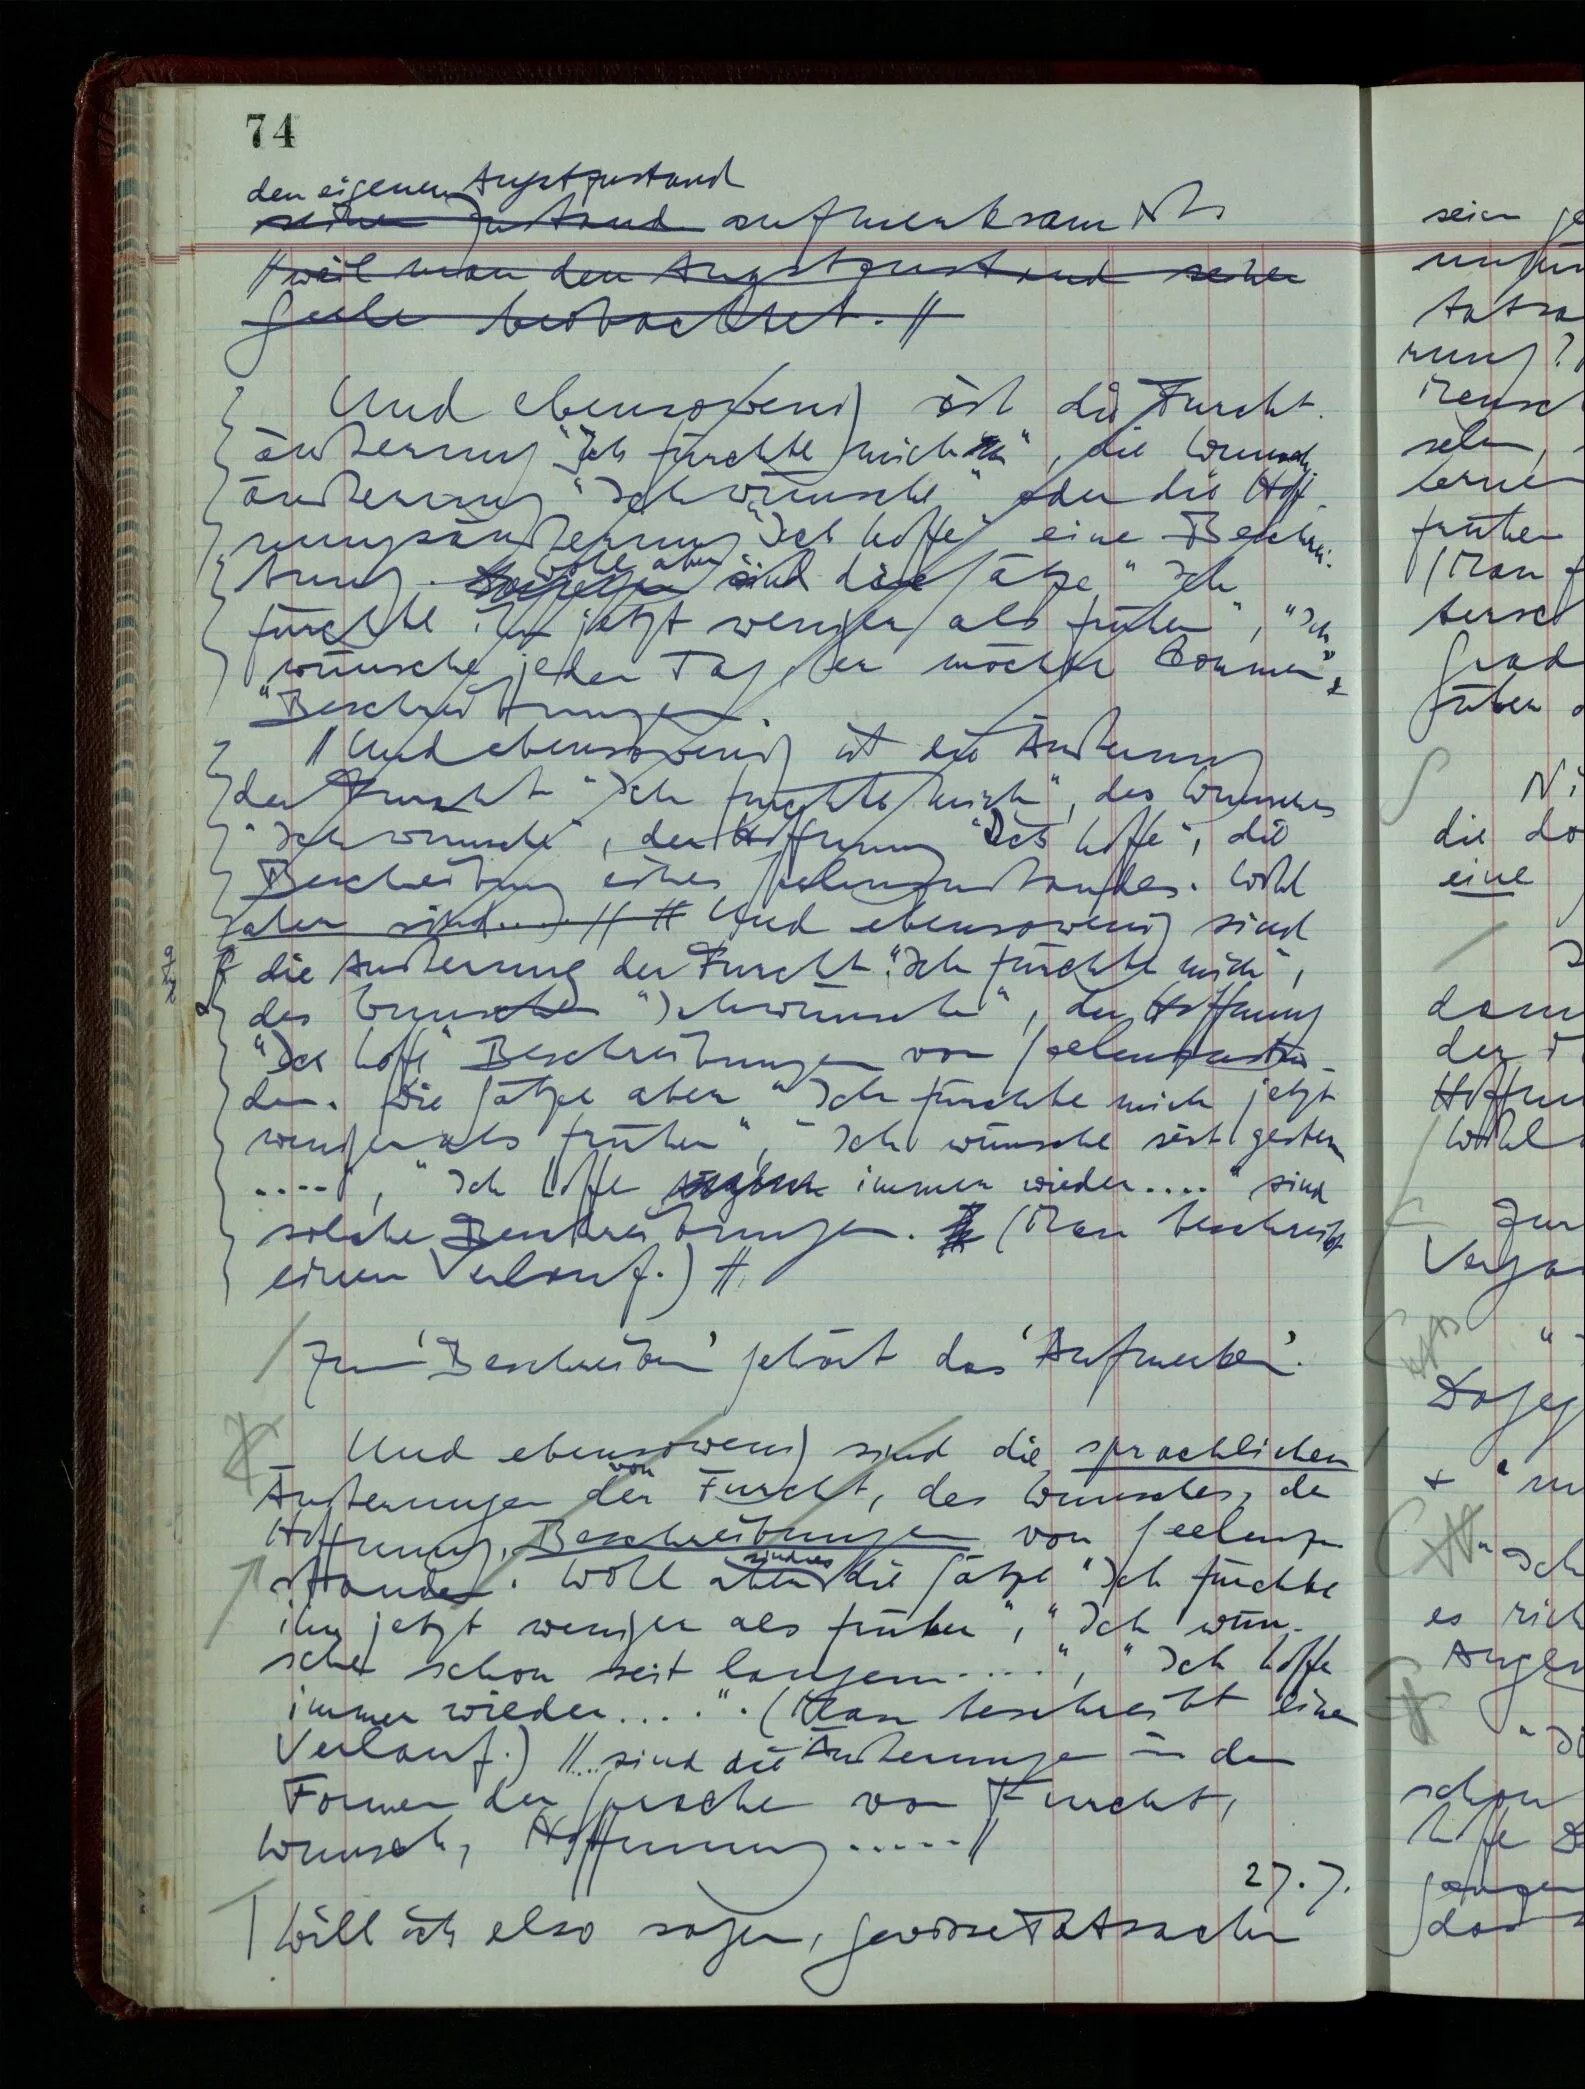 74
den eigenen Angstzustand
seinen Zustand aufmerksam ist.
// weil man den Angstzustand seiner
Seele beobachtet. //
Und ebensowenig ist die Furcht-
äußerung "Ich fürchte mich", die Wunsch-
äußerung "Ich wünsche" oder die Hoff-
nungsäußerung "Ich hoffe" eine Beschrei-
bung. wohl aber sind die Sätze "Ich
fürchte ihn jetzt weniger als früher", "Ich
wünsche jeden Tag, er möchte kommen"
Beschreibungen.
// Und ebensowenig ist die Äußerung
der Furcht "Ich fürchte mich", des Wunsches
"Ich wünsche", der Hoffnung "Ich hoffe", die
Beschreibung eines Seelenzustandes. Wohl
aber sind....) // // Und ebensowenig sind
die Äußerung der Furcht "Ich fürchte mich",
des Wunsches "Ich wünsche", der Hoffnung
"Ich hoffe" Beschreibungen von Seelenzustän-
den. Die Sätze aber "Ich fürchte mich jetzt
weniger als früher", "Ich wünsche seit gestern
....", "Ich hoffe immer wieder...." sind
solche Beschreibungen. (Man beschreibt
einen Verlauf.) //
Zum 'Beschreiben' gehört das 'Aufmerken'.
Und ebensowenig sind die sprachlichen
von
Äußerungen der Furcht, des Wunsches, der
Hoffnung, Beschreibungen von Seelenzu-
ständen. Wohl aber sind es die Sätze "Ich fürchte
ihn jetzt weniger als früher", "Ich wün-
sche schon seit langem....", "Ich hoffe
immer wieder....". (Man beschreibt einen
Verlauf.) //... sind die Äußerungen in den
Formen der Sprache von Furcht,
Wunsch, Hoffnung.....//
27.7.
Will ich also sagen, gewisse Tatsachen